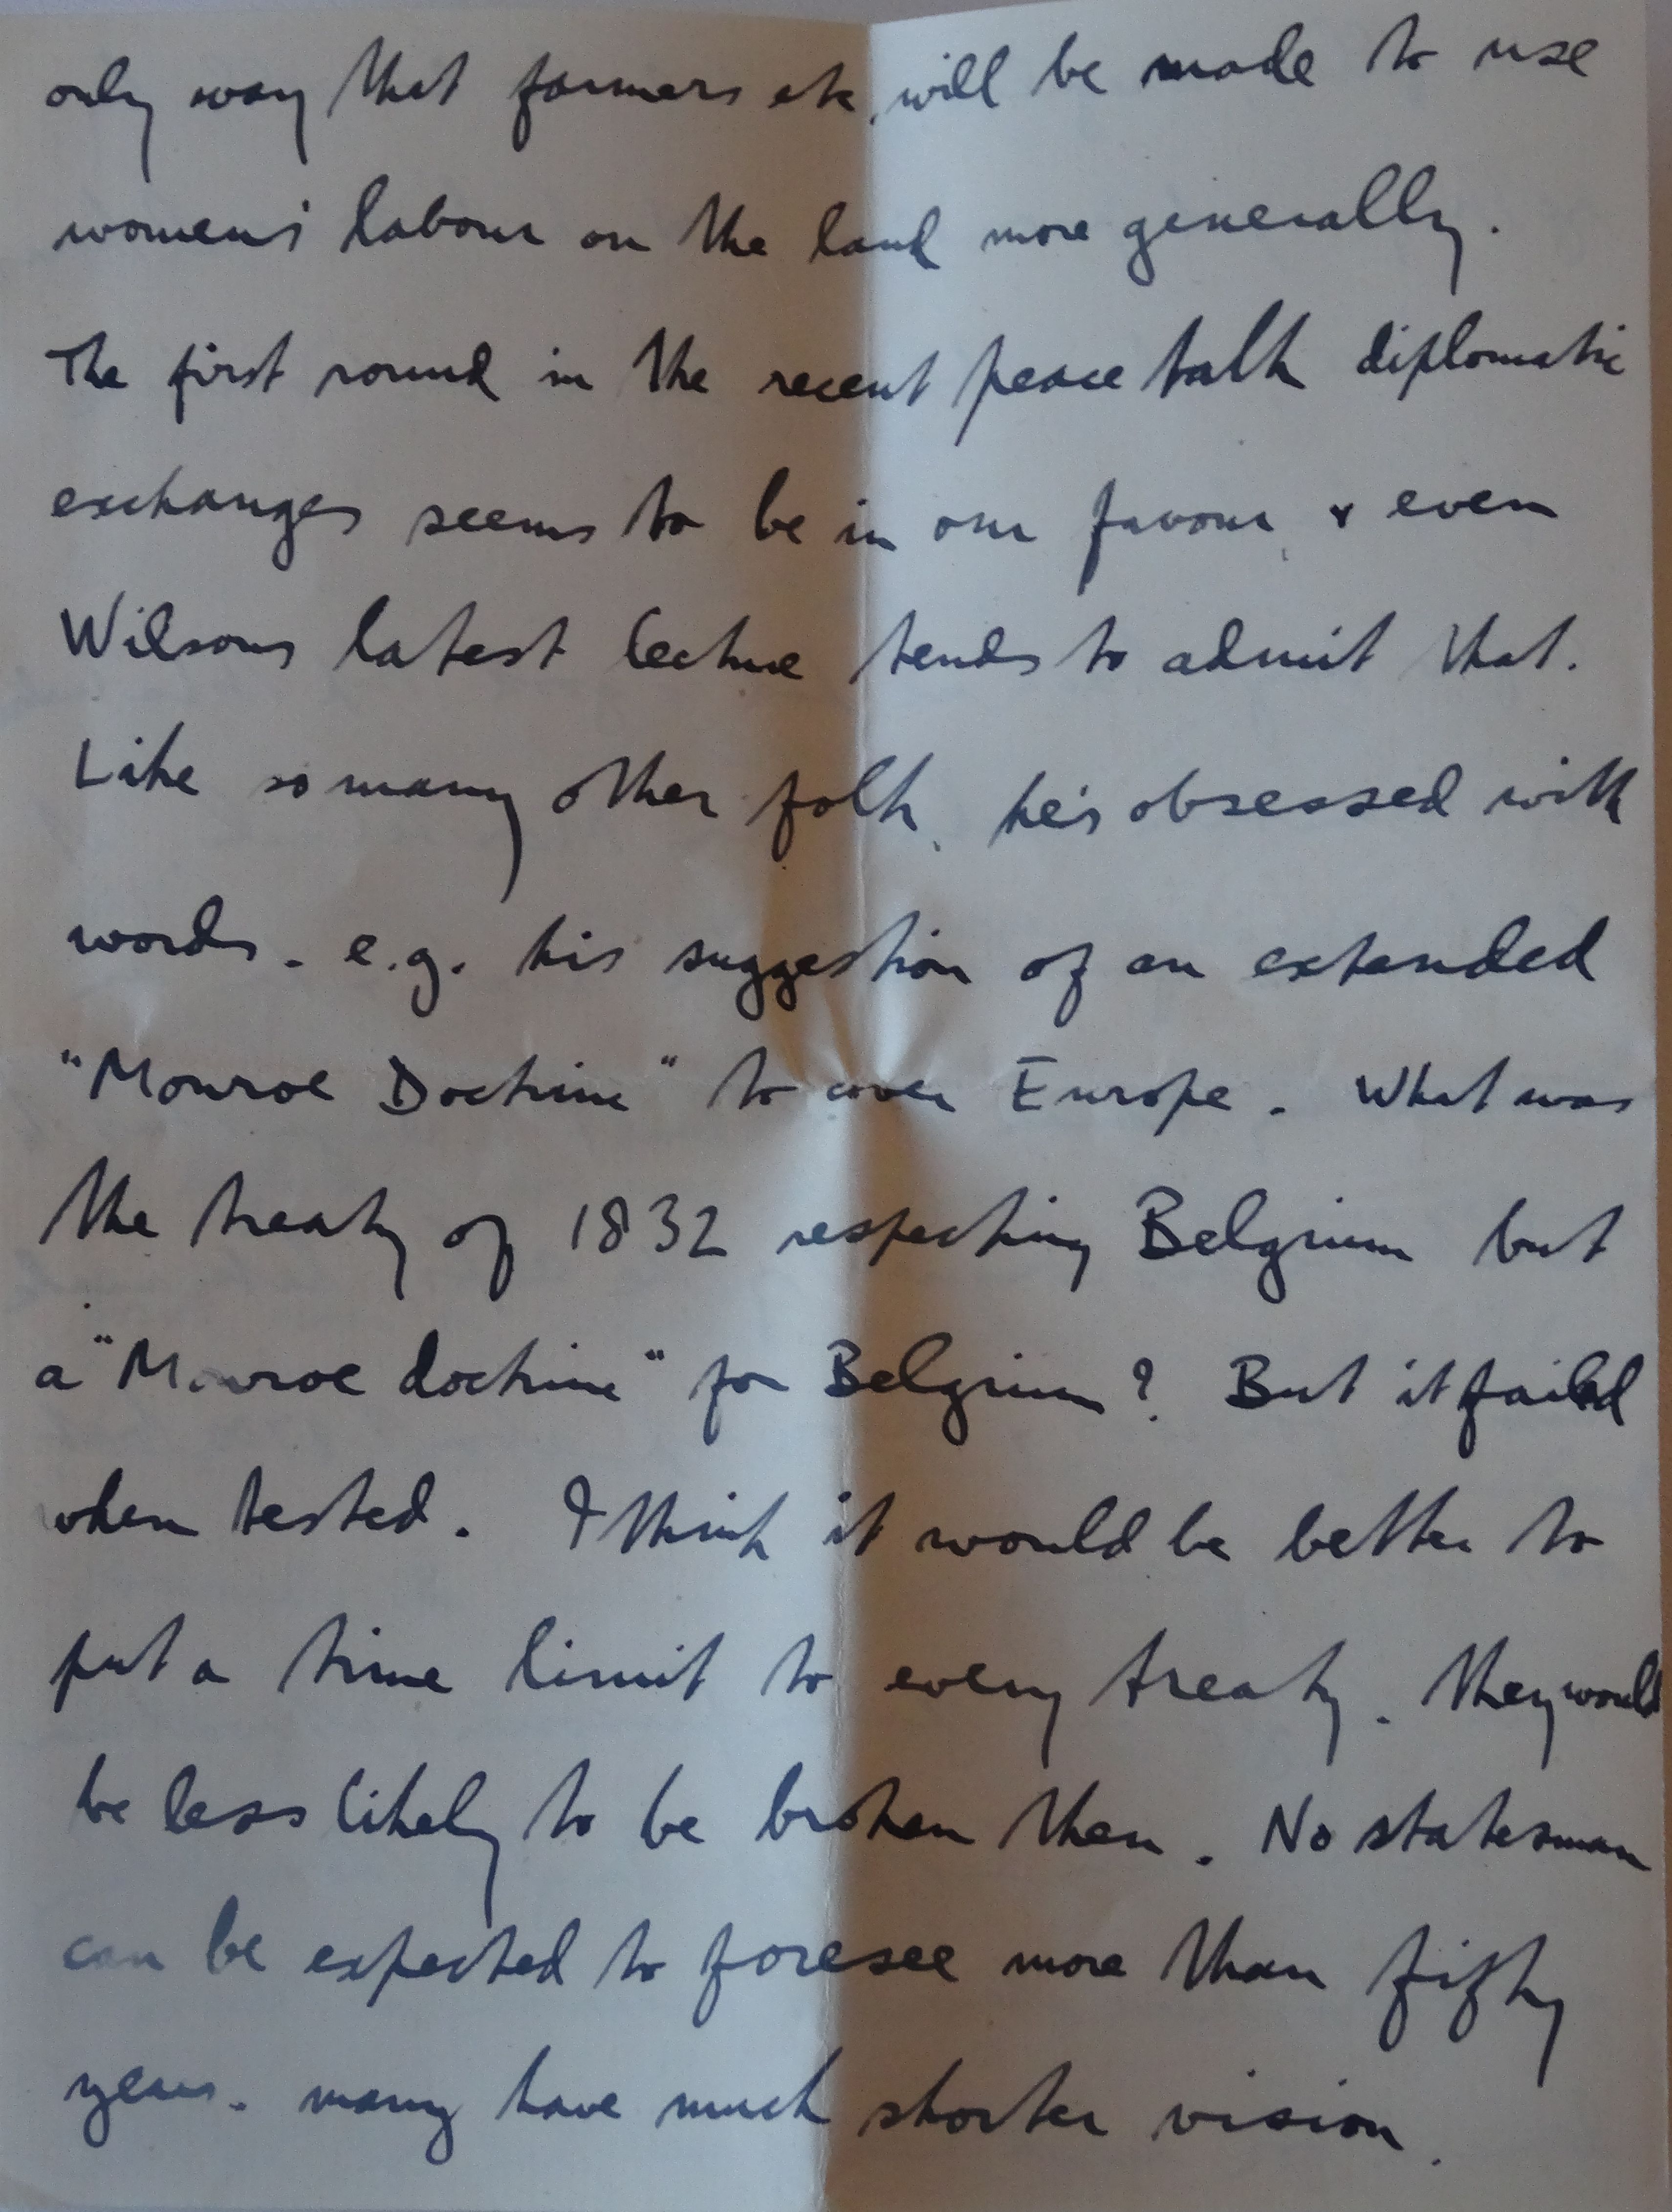 only way that farmers etc. will be made to use
women's labour on the land more generally.
The first round in the recent peace talk diplomatic
exchanges seems to be in our favour, & even
Wilsons latest lecture tends to admit that.
Like so many other folk, he's obsessed with
words. e.g. his suggestion of an extended
"Monroe Doctrine" to cover Europe. What was
the treaty of 1832 respecting Belgium but
a "Monroe doctrine" for Belgium? But it failed
when tested. I think it would be better to
put a time limit to every treaty. They would
be less likely to be broken then. No statesman
can be expected to foresee more than fifty
years. many have much shorter vision.